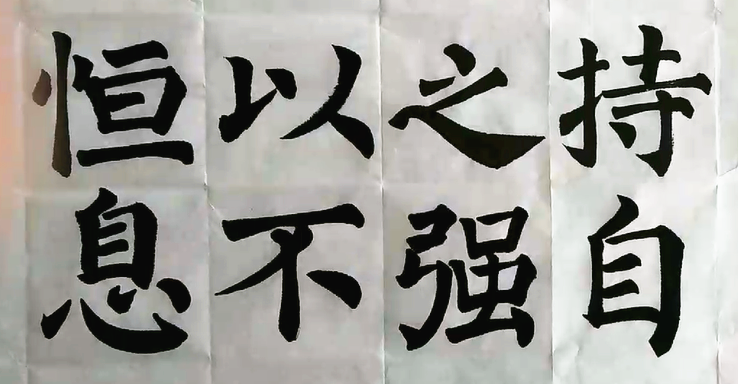 持之以恒
自强不息